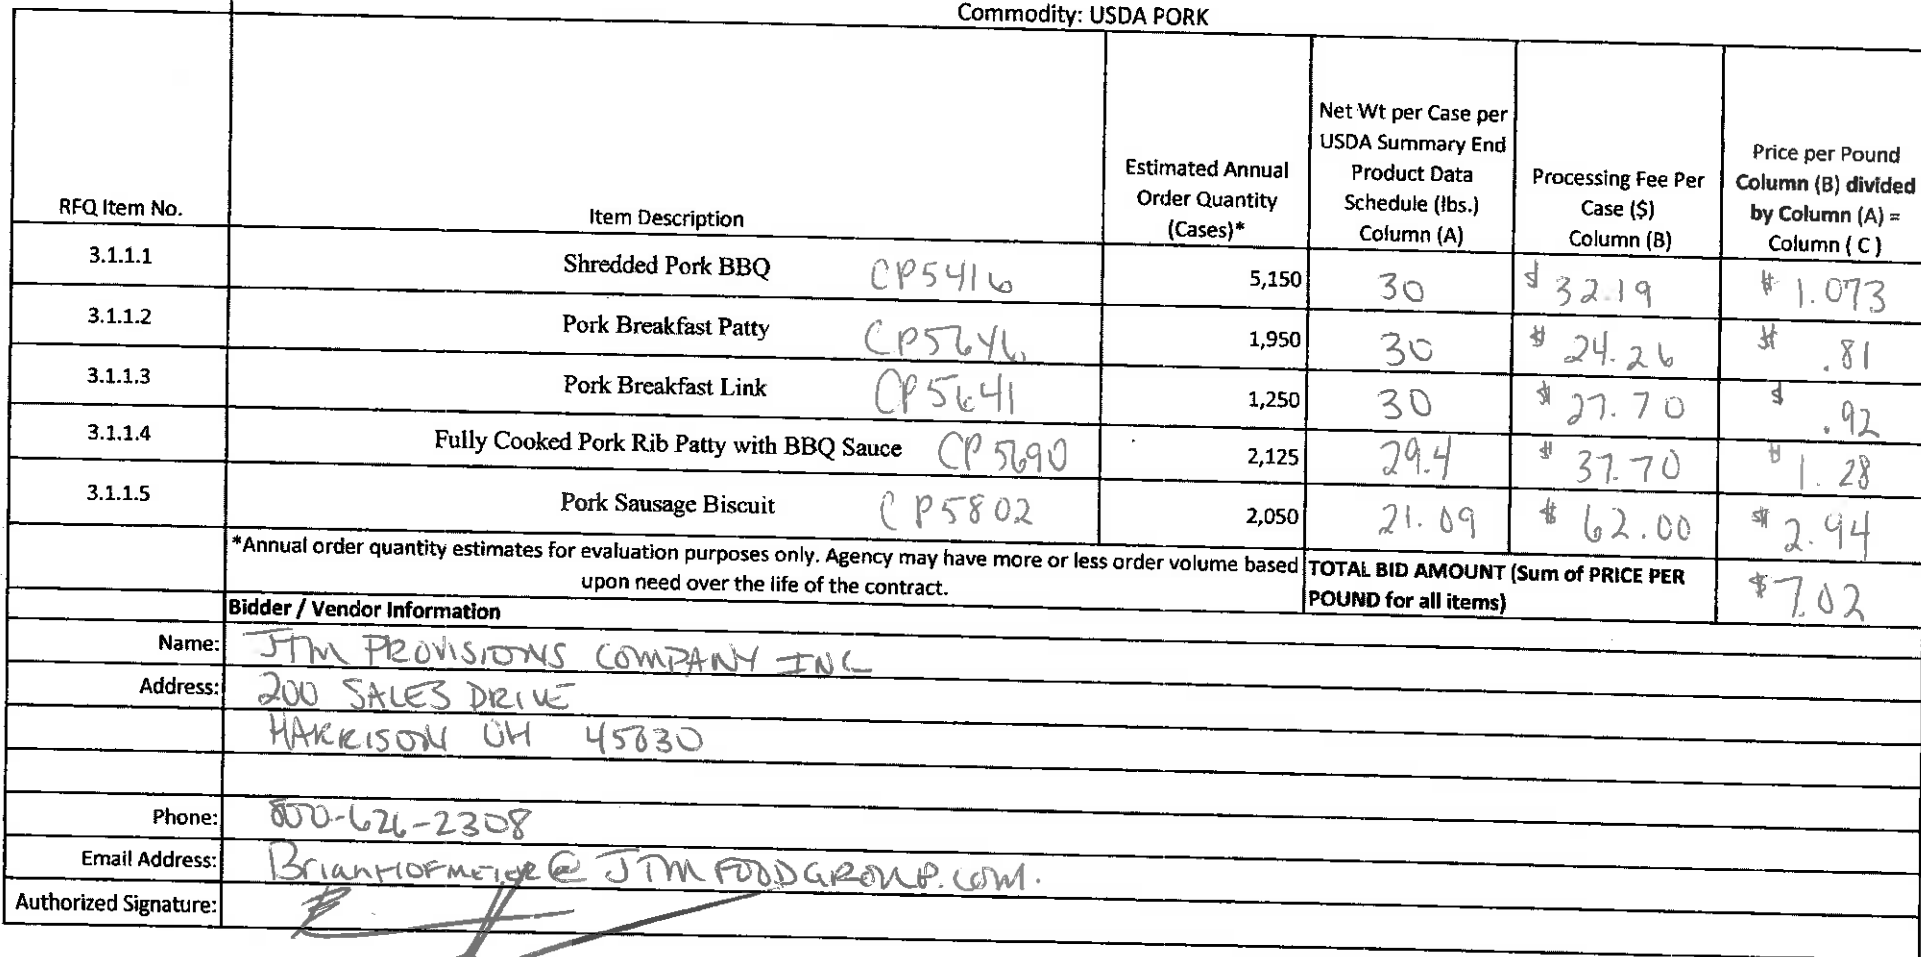 Commodity: USDA PORK
RFQ Item No.
Item Description
Estimated Annual
Order Quantity
(Cases)*
Net Wt per Case per
USDA Summary End
Product Data
Schedule (lbs.)
Column (A)
Processing Fee Per
Case ($)
Column (B)
Price per Pound
Column (B) divided
by Column (A) =
Column ( C )
3.1.1.1 Shredded Pork BBQ CP5416 5,150 30 $ 32.19 $ 1.073
3.1.1.2 Pork Breakfast Patty CP5646 1,950 30 $ 24.26 $ .81
3.1.1.3 Pork Breakfast Link CP5641 1,250 30 $ 27.70 $ .92
3.1.1.4 Fully Cooked Pork Rib Patty with BBQ Sauce CP 5690 2,125 29.4 $ 37.70 $ 1.28
3.1.1.5 Pork Sausage Biscuit CP5802 2,050 21.09 $ 62.00 $ 2.94
*Annual order quantity estimates for evaluation purposes only. Agency may have more or less order volume based
upon need over the life of the contract.
TOTAL BID AMOUNT (Sum of PRICE PER
POUND for all items)
$ 7.02
Bidder / Vendor Information
Name: JTM PROVISIONS COMPANY INC
Address: 200 SALES DRIVE
HARRISON OH 45030
Phone: 800-626-2308
Email Address: BrianHOFMEIER@JTMFOODGROUP.COM.
Authorized Signature: